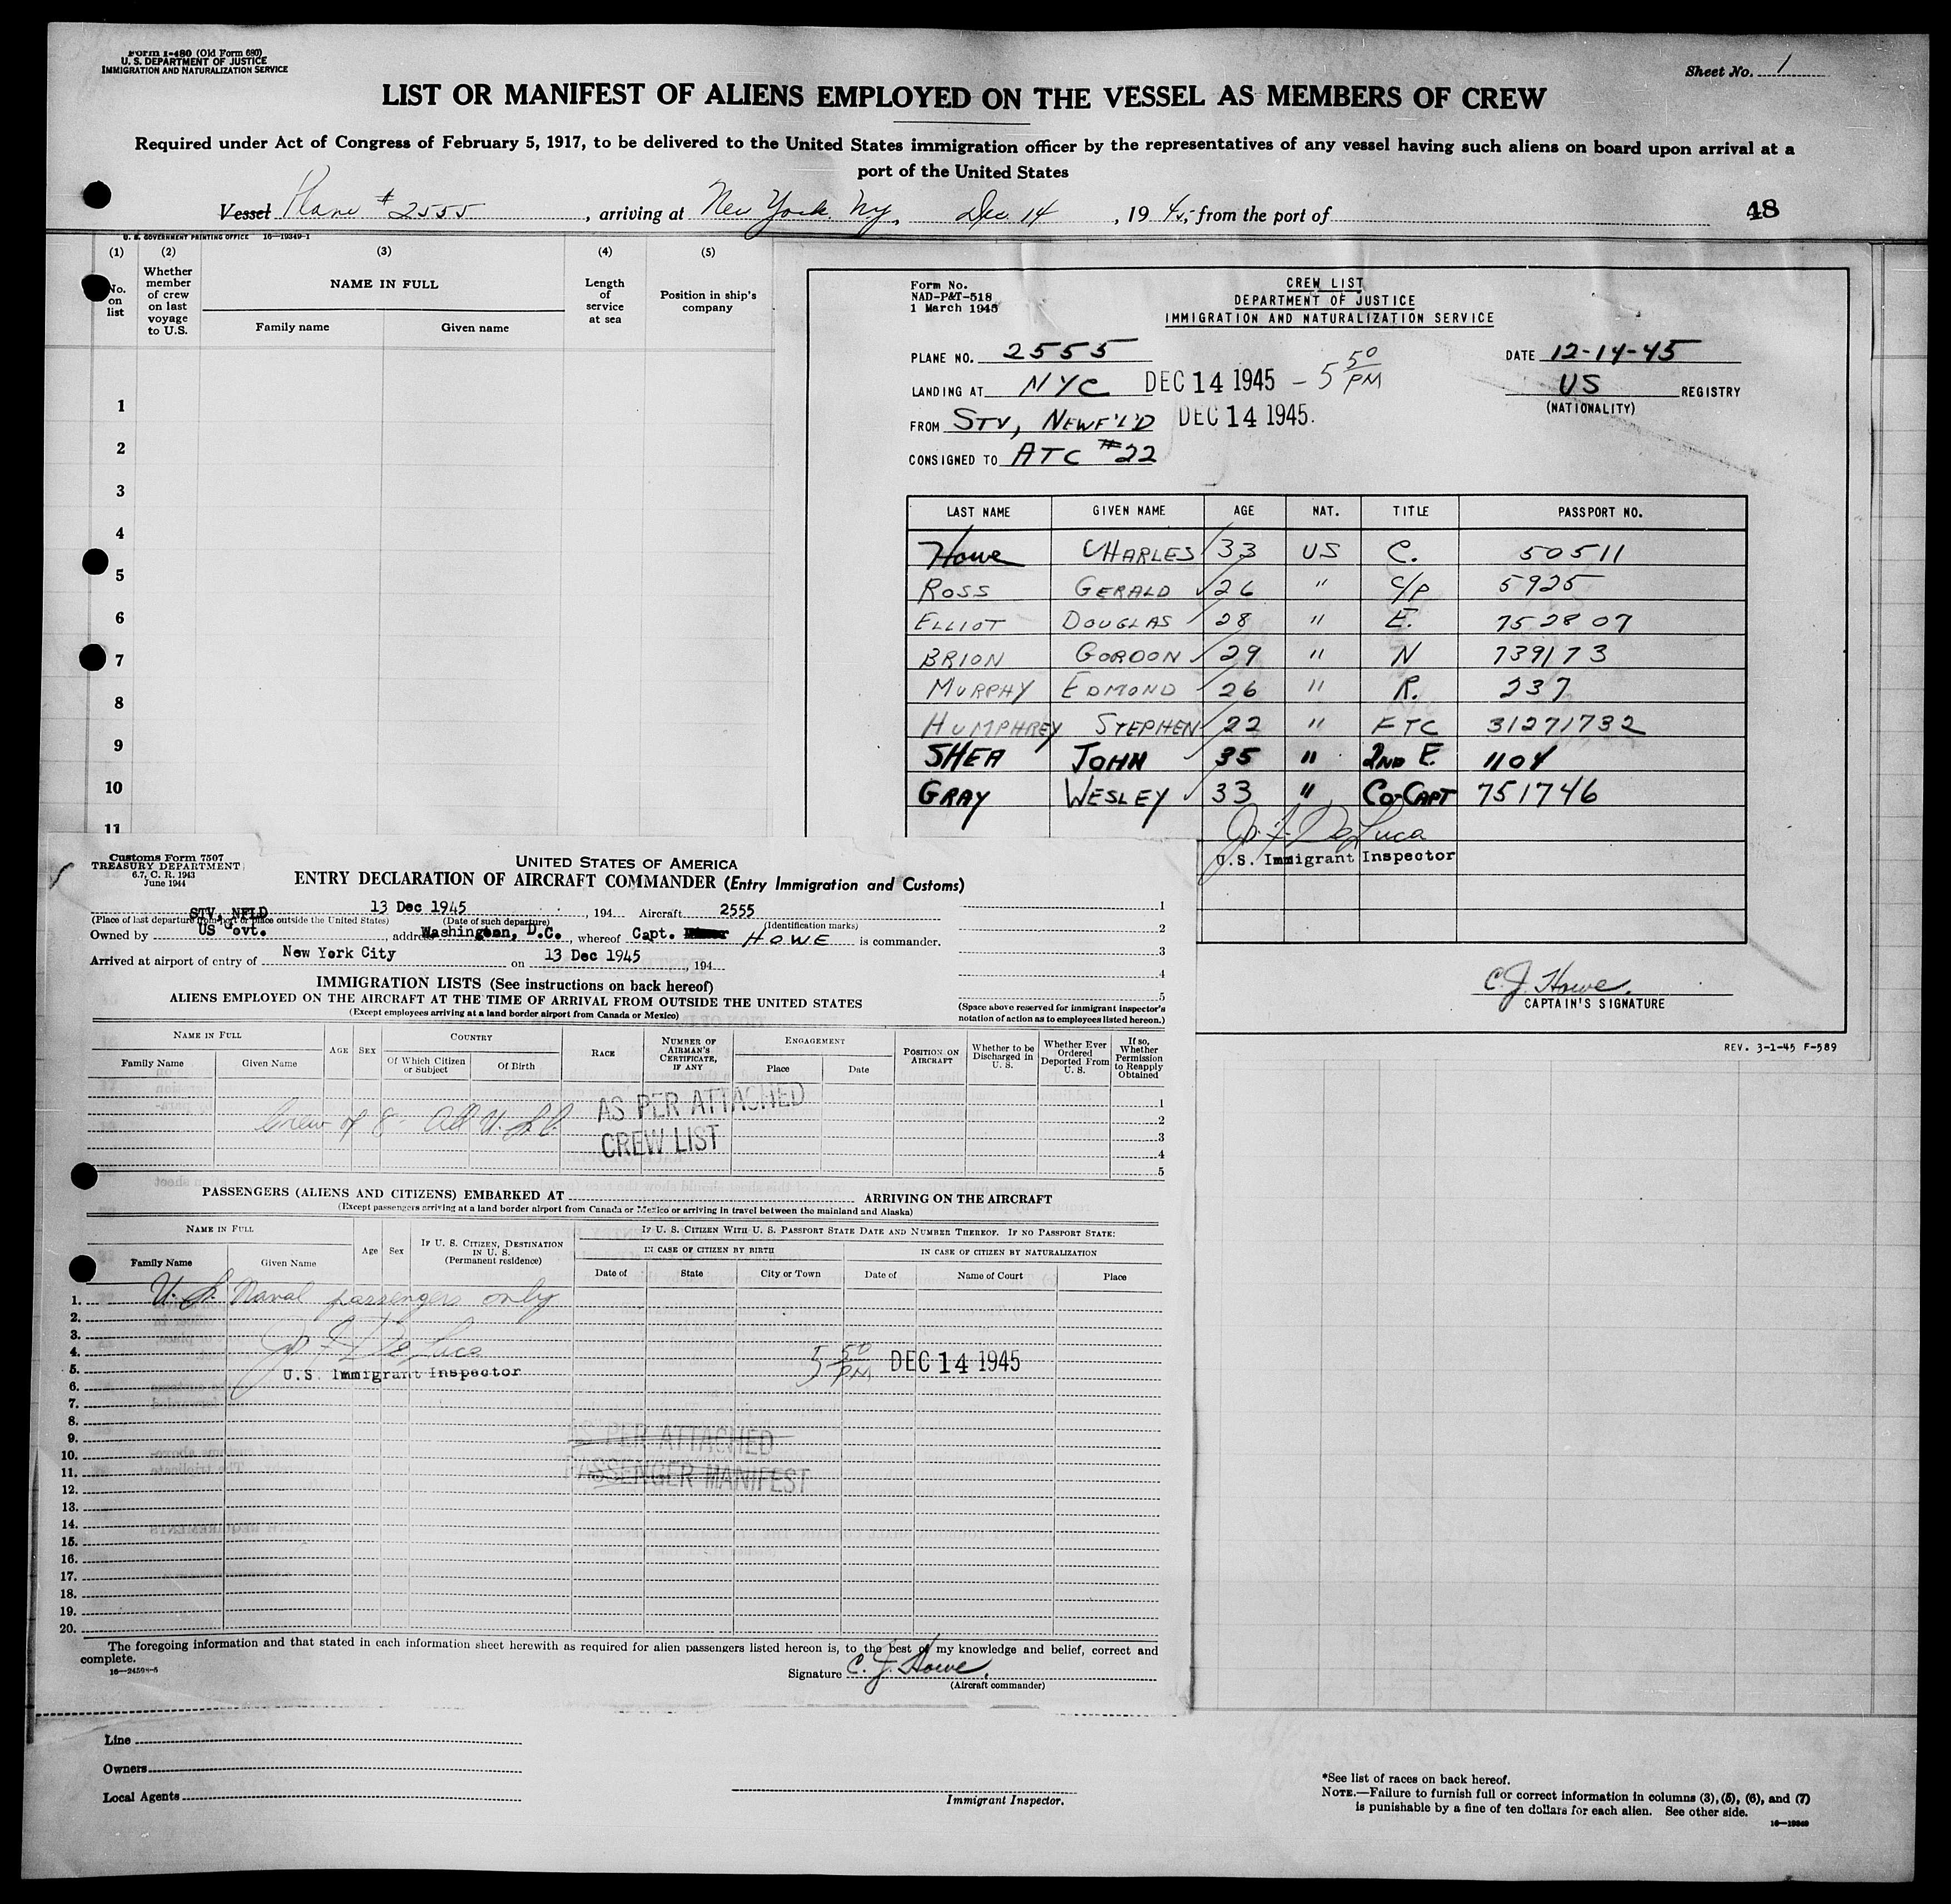 Form I-480 (Old Form 680)
U. S. DEPARTMENT OF JUSTICE
IMMIGRATION AND NATURALIZATION SERVICE
Sheet No. 1
LIST OR MANIFEST OF ALIENS EMPLOYED ON THE VESSEL AS MEMBERS OF CREW
Required under Act of Congress of February 5, 1917, to be delivered to the United States immigration officer by the representatives of any vessel having such aliens on board upon arrival at a
port of the United States
Vessel Plane # 2555, arriving at New York, N.Y., Dec 14, 1945, from the port of
48
U. S. GOVERNMENT PRINTING OFFICE 16—19349-1
(1) (2) (3) (4) (5)
No. on list
Whether member of crew on last voyage to U.S.
NAME IN FULL
Family name Given name
Length of service at sea
Position in ship's company
1
2
3
4
5
6
7
8
9
10
11
Form No.
NAD-P&T-518
1 March 1945
CREW LIST
DEPARTMENT OF JUSTICE
IMMIGRATION AND NATURALIZATION SERVICE
PLANE NO. 2555 DATE 12-14-45
LANDING AT NYC DEC 14 1945 - 5 50 PM US REGISTRY
(NATIONALITY)
FROM STV, NEWF'L'D DEC 14 1945.
CONSIGNED TO ATC #22
LAST NAME GIVEN NAME AGE NAT. TITLE PASSPORT NO.
Howe CHARLES 33 US C. 50511
ROSS GERALD 26 " C/P 5925
ELLIOT DOUGLAS 28 " E. 752807
BRION GORDON 29 " N 739173
MURPHY EDMOND 26 " R. 237
HUMPHREY STEPHEN 22 " FTC 31271732
SHEA JOHN 35 " 2ND E. 1104
GRAY WESLEY 33 " CO-CAPT 751746
U.S. Immigrant Inspector
C. J. Howe.
CAPTAIN'S SIGNATURE
REV. 3-1-45 F-589
Customs Form 7507
TREASURY DEPARTMENT
6.7, C. R. 1943
June 1944
UNITED STATES OF AMERICA
ENTRY DECLARATION OF AIRCRAFT COMMANDER (Entry Immigration and Customs)
STV, NFLD 13 Dec 1945, 194 Aircraft 2555
(Place of last departure from port or place outside the United States) (Date of such departure) (Identification marks)
Owned by US Govt., address Washington, D.C., whereof Capt. HOWE is commander.
Arrived at airport of entry of New York City on 13 Dec 1945, 194
1
2
3
4
5
IMMIGRATION LISTS (See instructions on back hereof)
ALIENS EMPLOYED ON THE AIRCRAFT AT THE TIME OF ARRIVAL FROM OUTSIDE THE UNITED STATES
(Except employees arriving at a land border airport from Canada or Mexico)
(Space above reserved for immigrant inspector's notation of action as to employees listed hereon.)
NAME IN FULL
Family Name Given Name
AGE SEX
COUNTRY
Of Which Citizen or Subject Of Birth
RACE
NUMBER OF AIRMAN'S CERTIFICATE, IF ANY
ENGAGEMENT
Place Date
POSITION ON AIRCRAFT
Whether to be Discharged in U. S.
Whether Ever Ordered Deported From U. S.
If so, Whether Permission to Reapply Obtained
1
2
3
4
5
Crew of 8 - All U.S.C.
AS PER ATTACHED
CREW LIST
PASSENGERS (ALIENS AND CITIZENS) EMBARKED AT ARRIVING ON THE AIRCRAFT
(Except passengers arriving at a land border airport from Canada or Mexico or arriving in travel between the mainland and Alaska)
NAME IN FULL
Family Name Given Name
Age Sex
IF U. S. CITIZEN, DESTINATION IN U. S. (Permanent residence)
IF U. S. CITIZEN WITH U. S. PASSPORT STATE DATE AND NUMBER THEREOF. IF NO PASSPORT STATE:
IN CASE OF CITIZEN BY BIRTH IN CASE OF CITIZEN BY NATURALIZATION
Date of State City or Town Date of Name of Court Place
1. U.S. Naval passengers only
2.
3.
4.
5. U.S. Immigrant Inspector 5 50 PM DEC 14 1945
6.
7.
8.
9. AS PER ATTACHED
10.
11. PASSENGER MANIFEST
12.
13.
14.
15.
16.
17.
18.
19.
20.
The foregoing information and that stated in each information sheet herewith as required for alien passengers listed hereon is, to the best of my knowledge and belief, correct and
complete.
Signature C. J. Howe.
(Aircraft commander)
Line
Owners
Local Agents
Immigrant Inspector.
*See list of races on back hereof.
NOTE.—Failure to furnish full or correct information in columns (3), (5), (6), and (7)
is punishable by a fine of ten dollars for each alien. See other side.